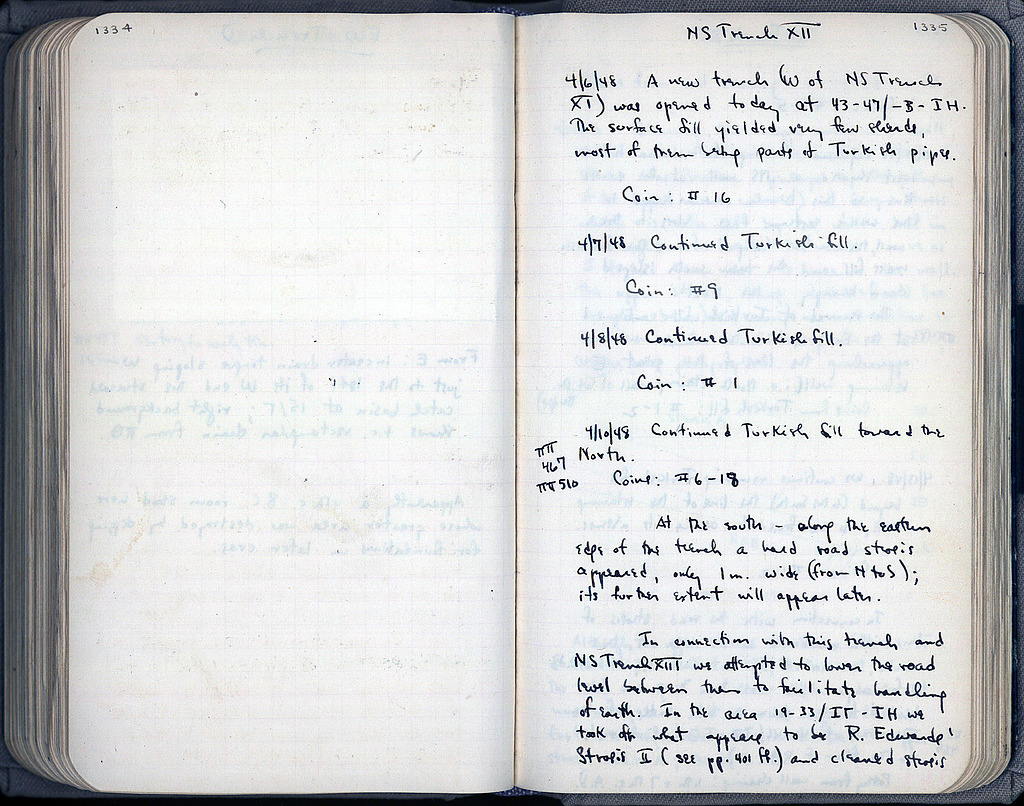 1334
1335
NS Trench XII
4/6/48 A new trench (W of NS Trench
XI) was opened today at 43-47/-B-IH.
The surface fill yielded very few sherds,
most of them being parts of Turkish pipes.
Coin: #16
4/7/48 Continued Turkish fill.
Coin: #9
4/8/48 Continued Turkish fill.
Coin: #1
4/10/48 Continued Turkish fill toward the
North.
ΠΠ
467
ΠΠ 510
Coins: #6-18
At the south - along the eastern
edge of the trench a hard road strosis
appeared, only 1m. wide (from N to S);
its further extent will appear later.
In connection with this trench and
NS Trench XIII we attempted to lower the road
level between them to facilitate handling
of earth. In the area 19-33/IΓ-IH we
took off what appears to be R. Edwards'
Strosis II (see pp. 401 ff.) and cleaned strosis